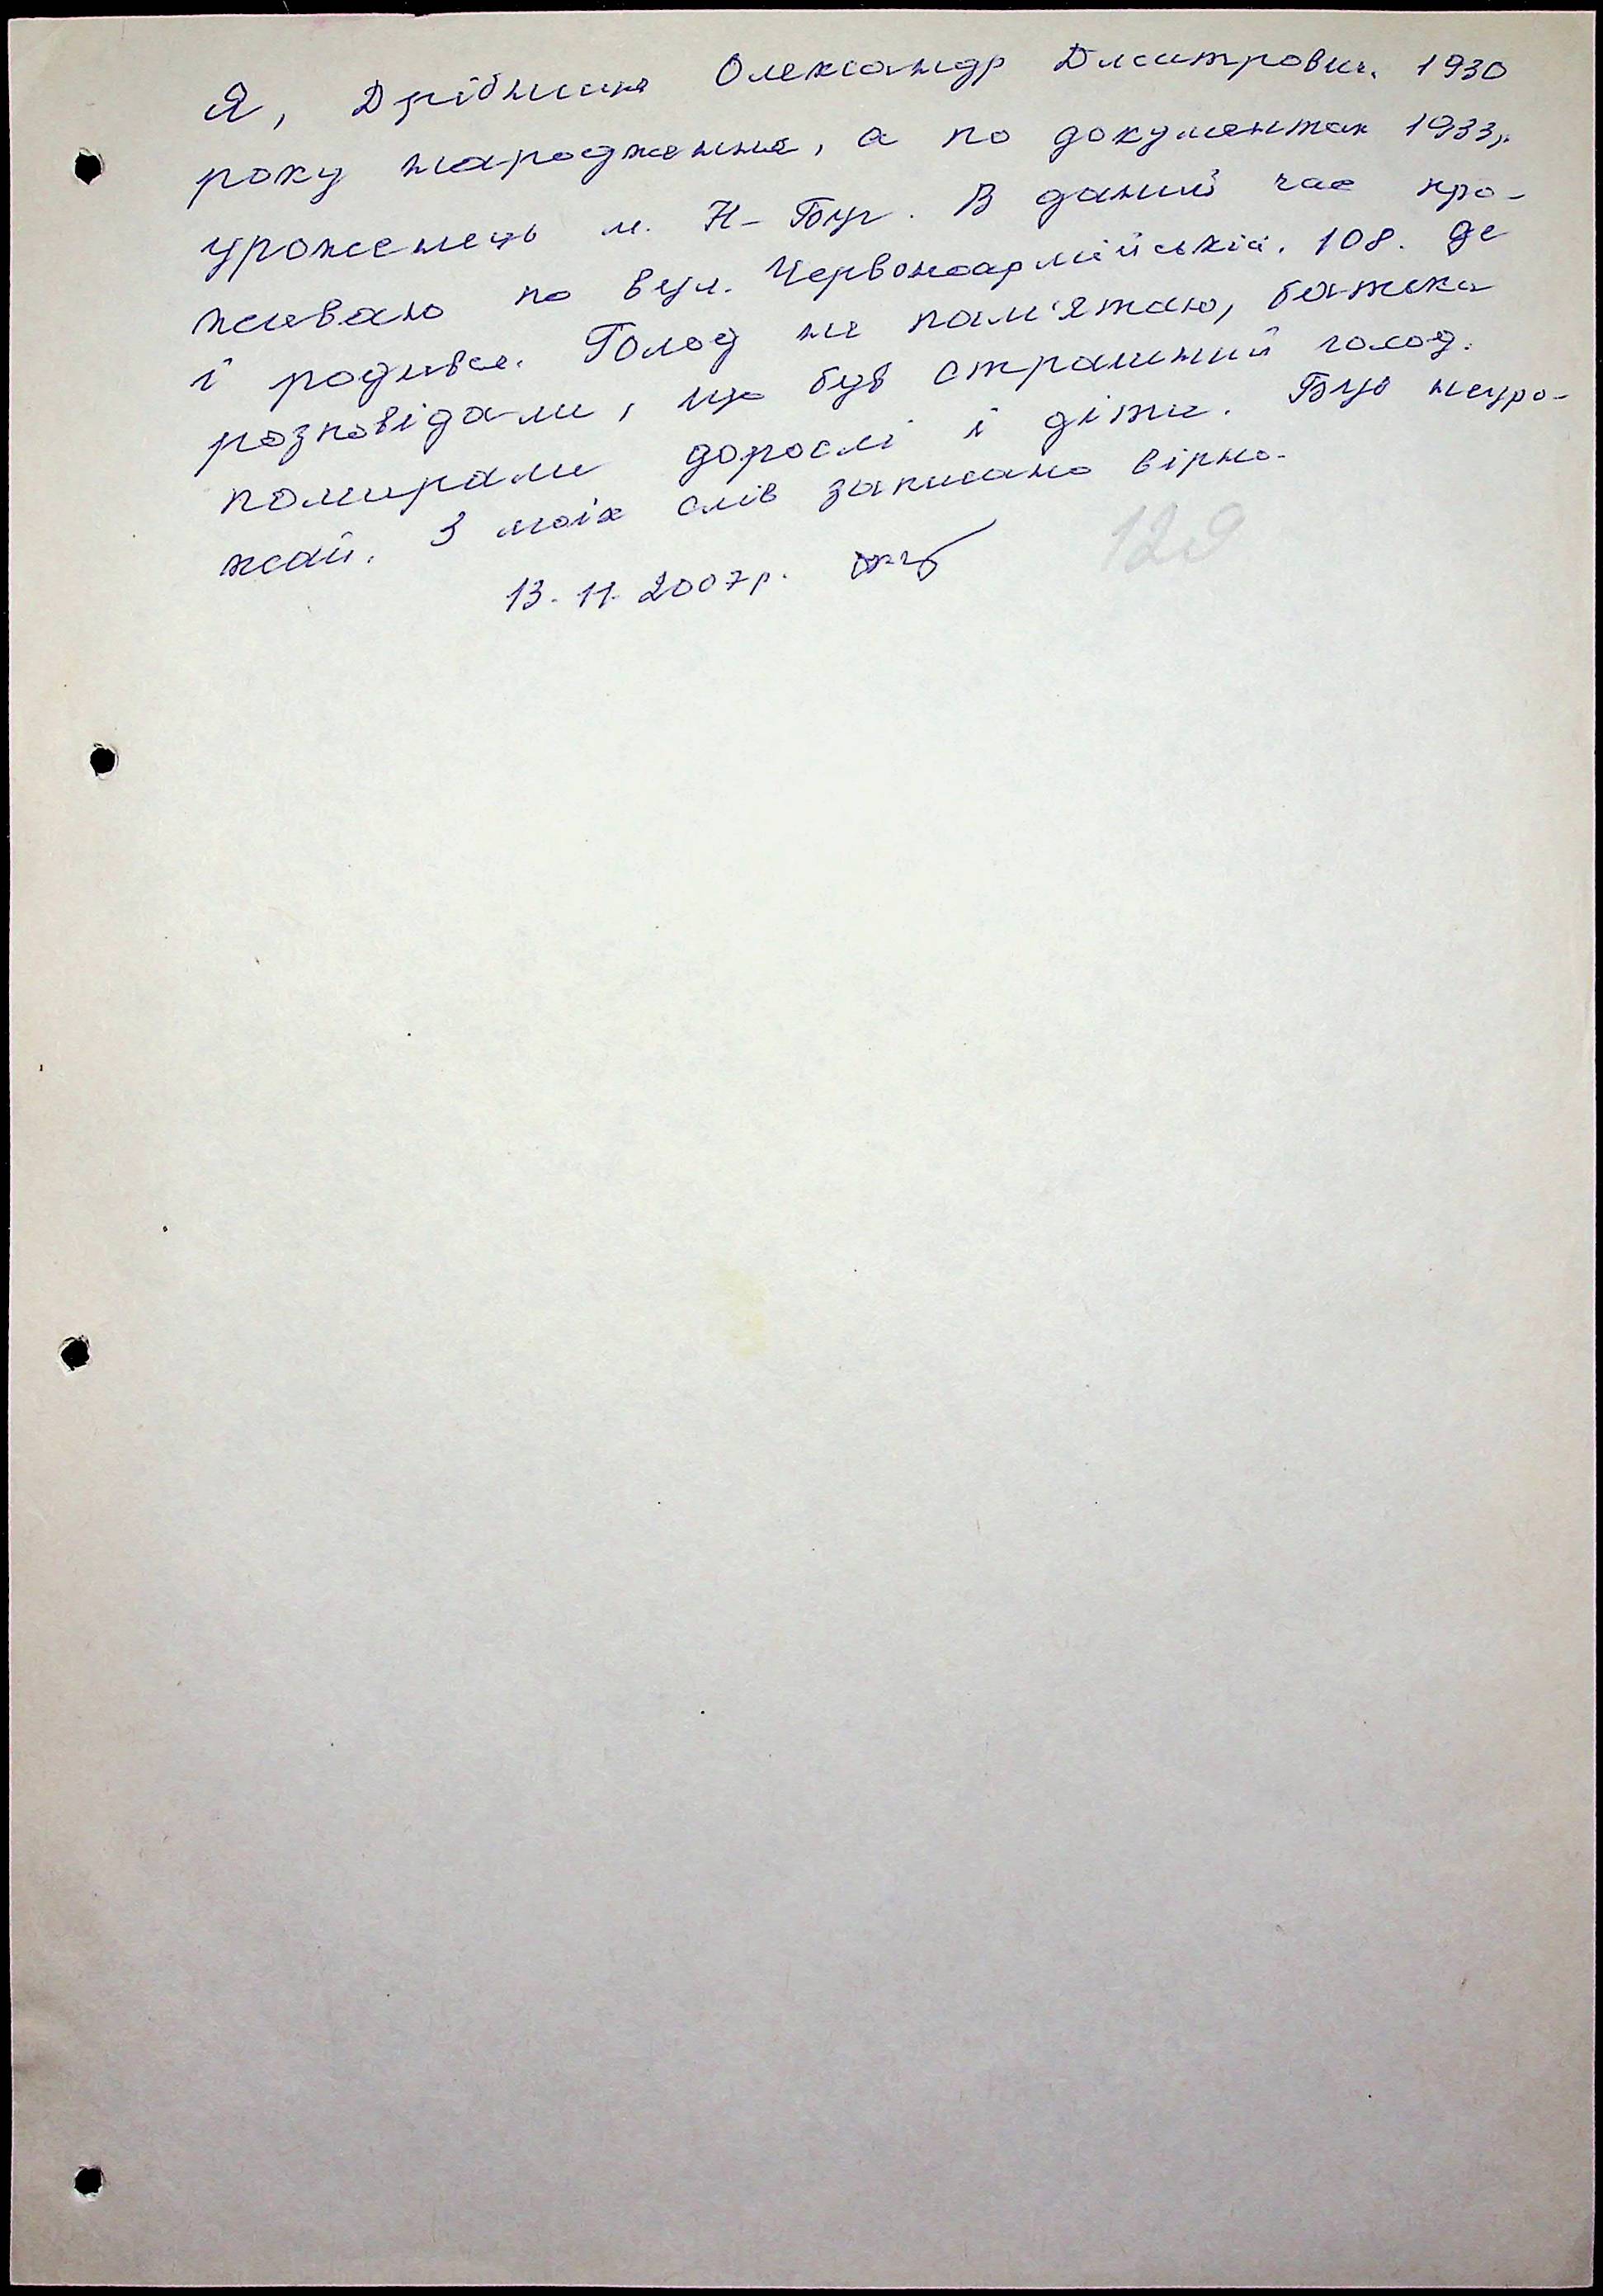 Я, Дрібниця Олександр Дмитрович. 1930
року народження, а по документах 1933р.
уроженець м. Н-Буг. В даний час про-
живаю по вул. Червоноармійській. 108. де
і родився. Голод не пам'ятаю, батьки
розповідали, що був страшний голод.
помирали дорослі і діти. Був неуро-
жай. З моїх слів записано вірно.
13. 11. 2007р.
129